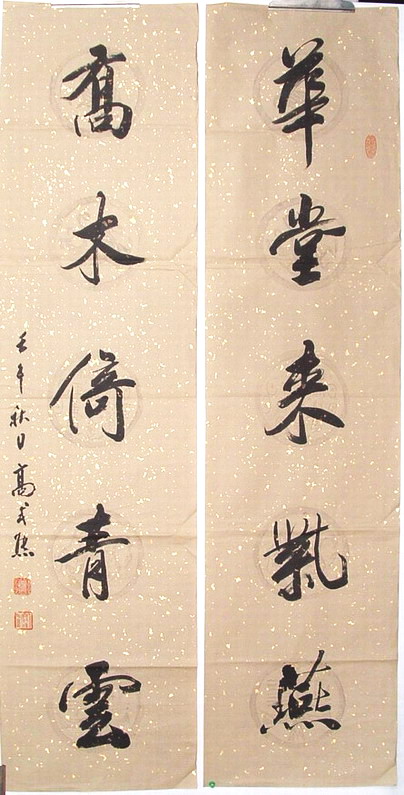 華堂来紫燕
喬木倚青雲
壬午秋日高式熊